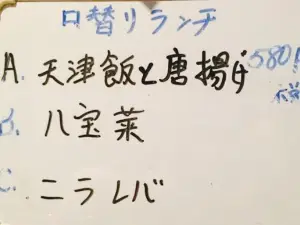 日替りランチ
A. 天津飯と唐揚げ 580
B. 八宝菜
C. ニラレバ